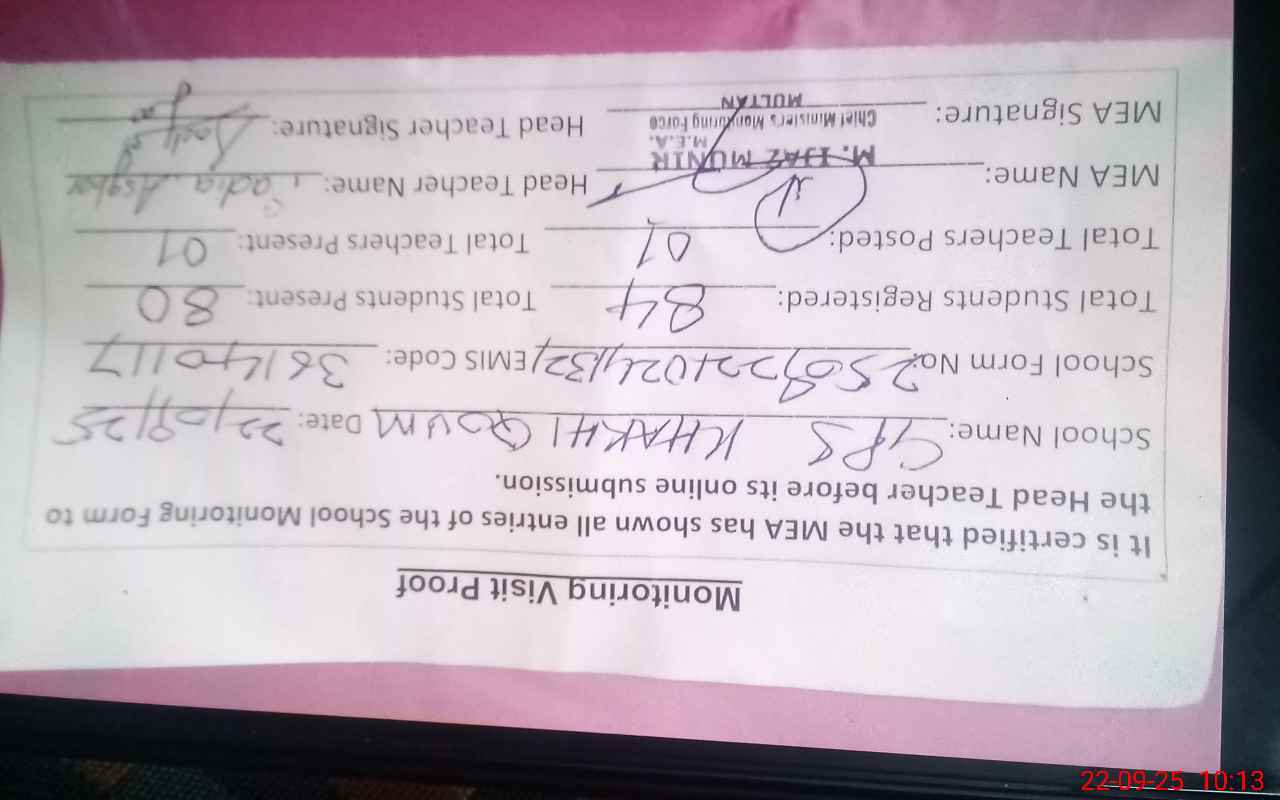 Monitoring Visit Proof
It is certified that the MEA has shown all entries of the School Monitoring Form to
the Head Teacher before its online submission.
School Name: GPS KHAKHI QOUM Date: 22/09/25
School Form No: EMIS Code: 36140117
Total Students Registered: 84 Total Students Present: 80
Total Teachers Posted: 01 Total Teachers Present: 01
MEA Name: M. IJAZ MUNIR Head Teacher Name: Asghar
M.E.A.
Chief Minister's Monitoring Force
MULTAN
MEA Signature: Head Teacher Signature:
22-09-25 10:13